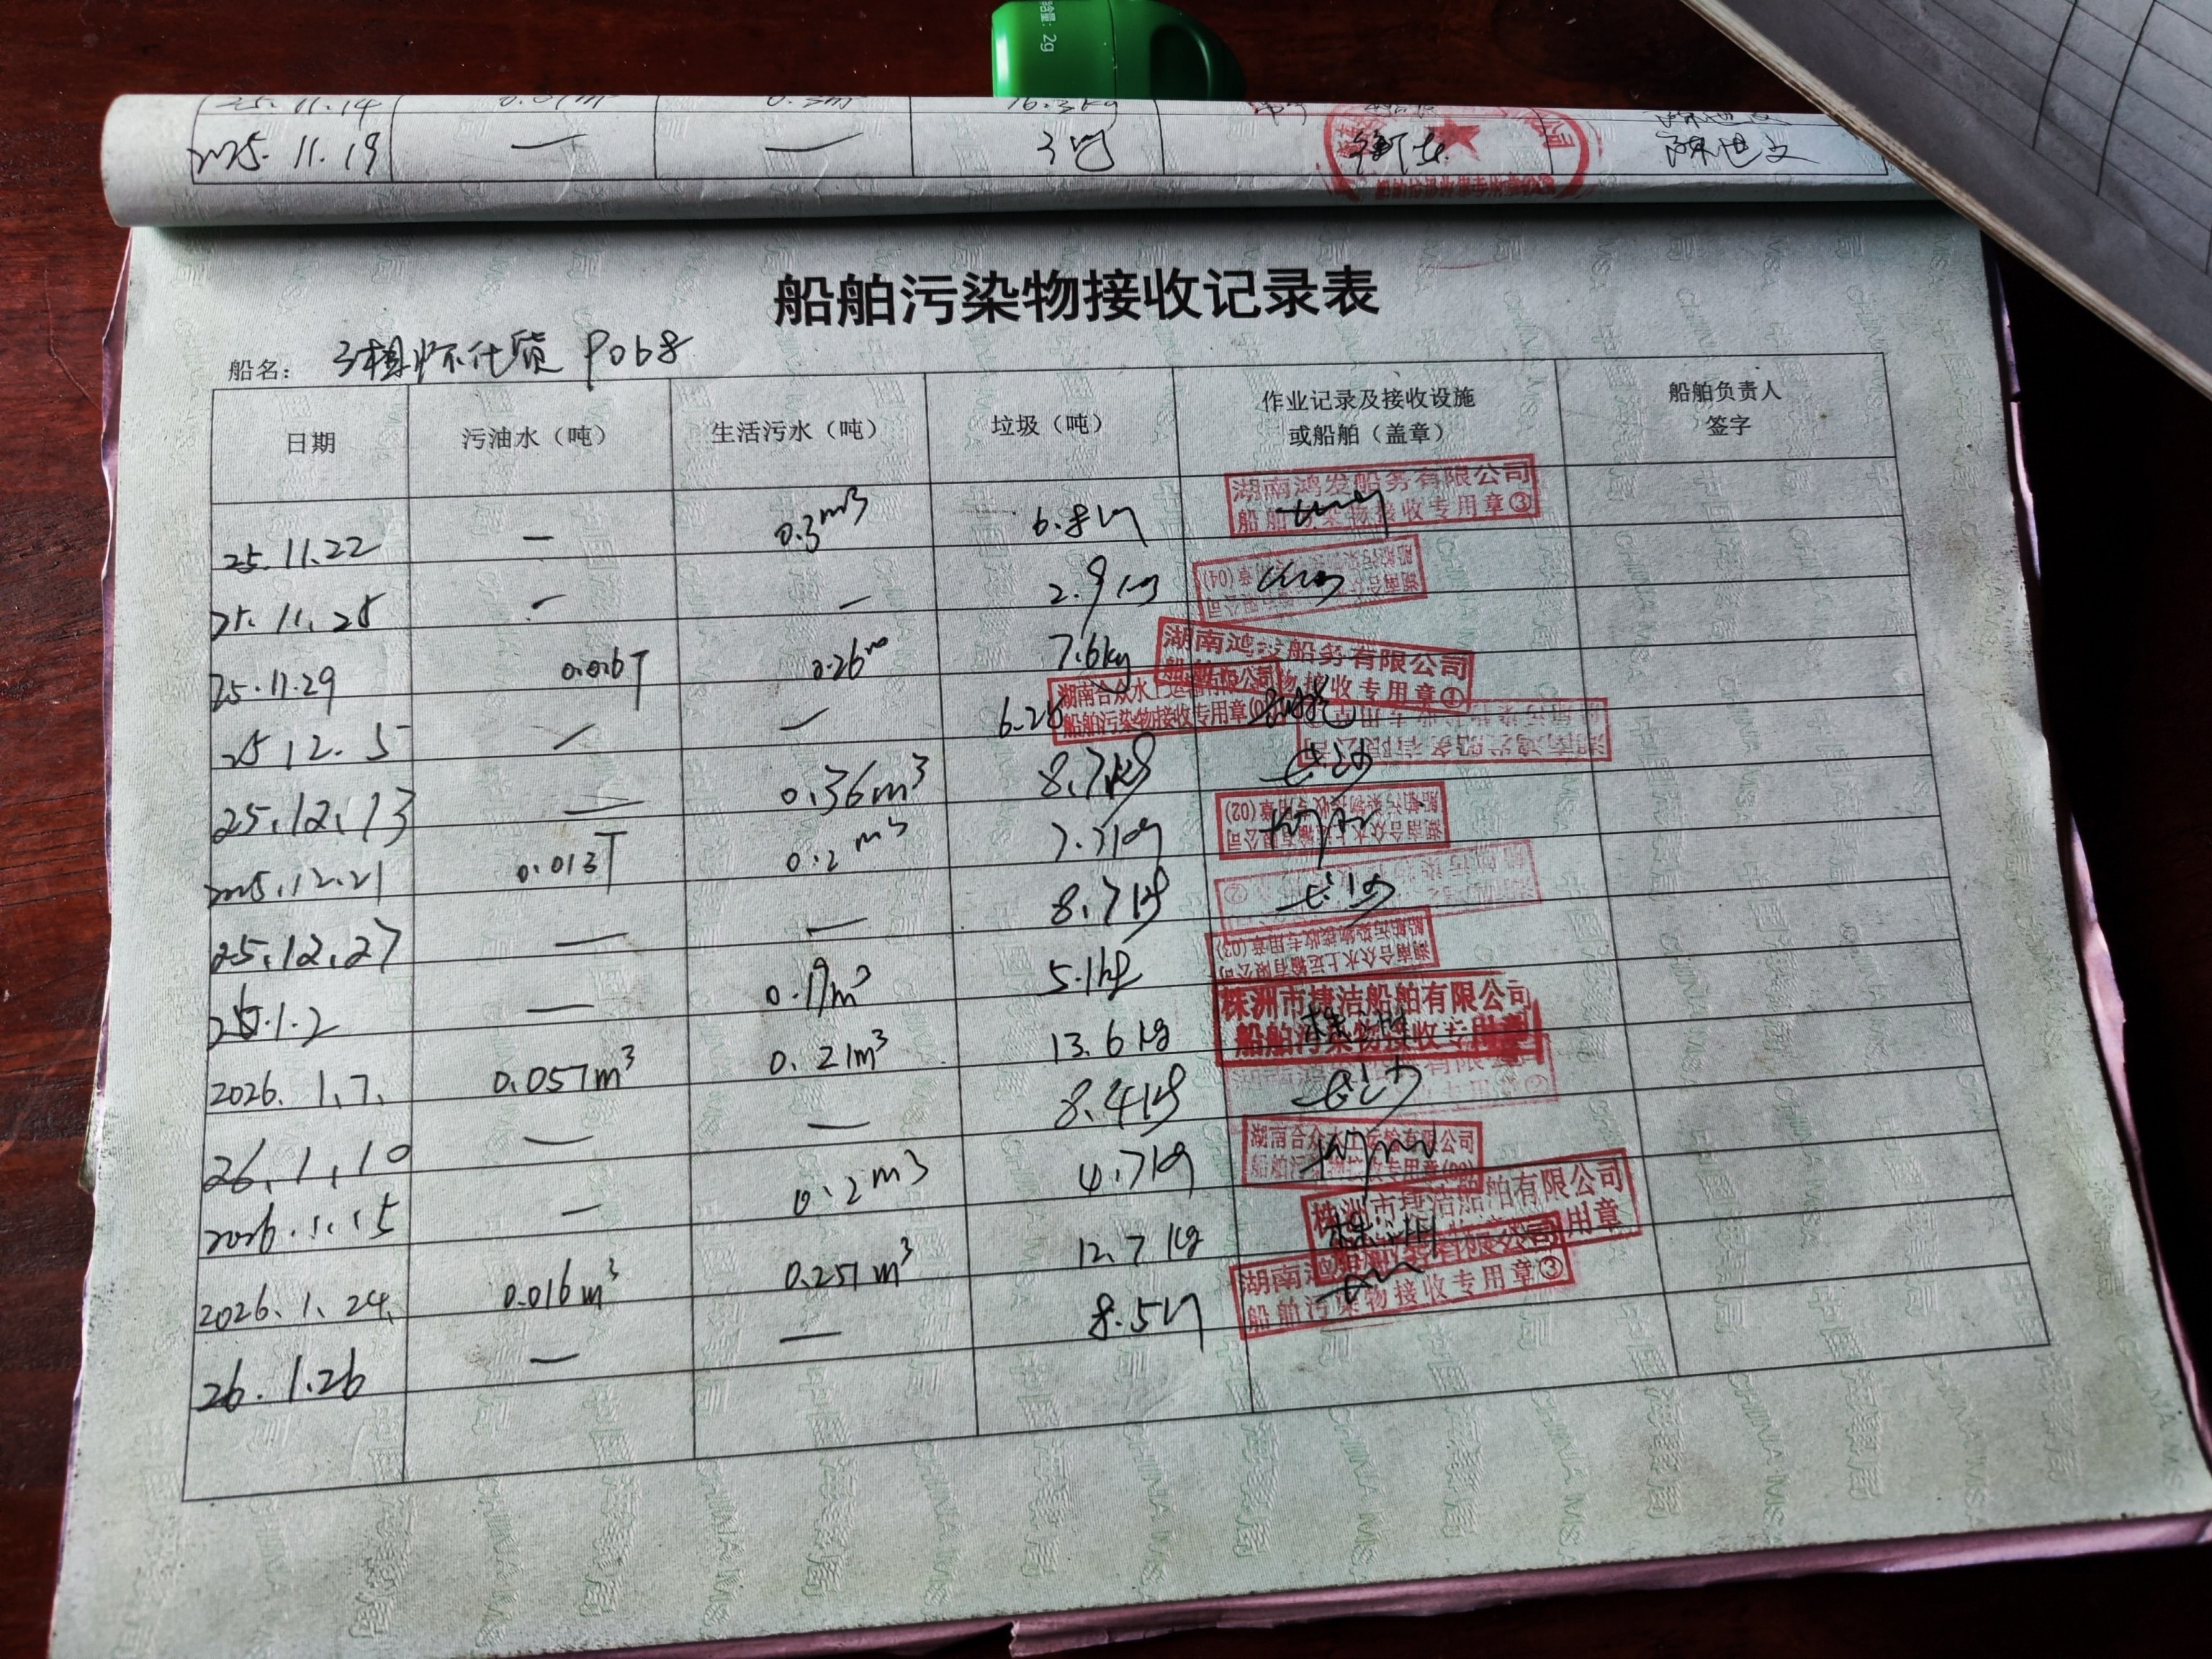 含量: 2g
25.11.14 0.01m³ 0.3m³ 16.3kg
2025.11.19 — — 3 衡东 陈世文
船舶污染物接收记录表
船名: P068
日期 污油水（吨） 生活污水（吨） 垃圾（吨） 作业记录及接收设施或船舶（盖章） 船舶负责人签字
25.11.22 — 0.3m³ 6.8 湖南鸿发船务有限公司 船舶污染物接收专用章③
25.11.25 — — 2.9 (04)
25.11.29 0.026T 0.26 7.6kg 湖南鸿发船务有限公司 船舶污染物接收专用章①
25.12.5 — — 6.2 湖南合众水上运输有限公司 船舶污染物接收专用章
25.12.13 — 0.36m³ 8.7kg 湖南鸿发船务有限公司 长沙
2025.12.21 0.013T 0.2m³ 7.3kg 湖南合众水上运输有限公司 船舶污染物接收专用章(02)
25.12.27 — — 8.7kg 长沙 ②
26.1.2 — 0.19m³ 5.1kg 湖南合众水上运输有限公司 船舶污染物接收专用章(03)
2026.1.7. 0.057m³ 0.21m³ 13.6kg 株洲市捷洁船舶有限公司 船舶污染物接收专用章 株洲
26.1.10 — — 8.4kg 长沙
2026.1.15 — 0.2m³ 4.7kg 湖南合众水上运输有限公司 船舶污染物接收专用章
2026.1.24. 0.016m³ 0.251m³ 12.7kg 株洲市捷洁船舶有限公司 株洲
26.1.26 — — 8.5 湖南鸿发船务有限公司 船舶污染物接收专用章③